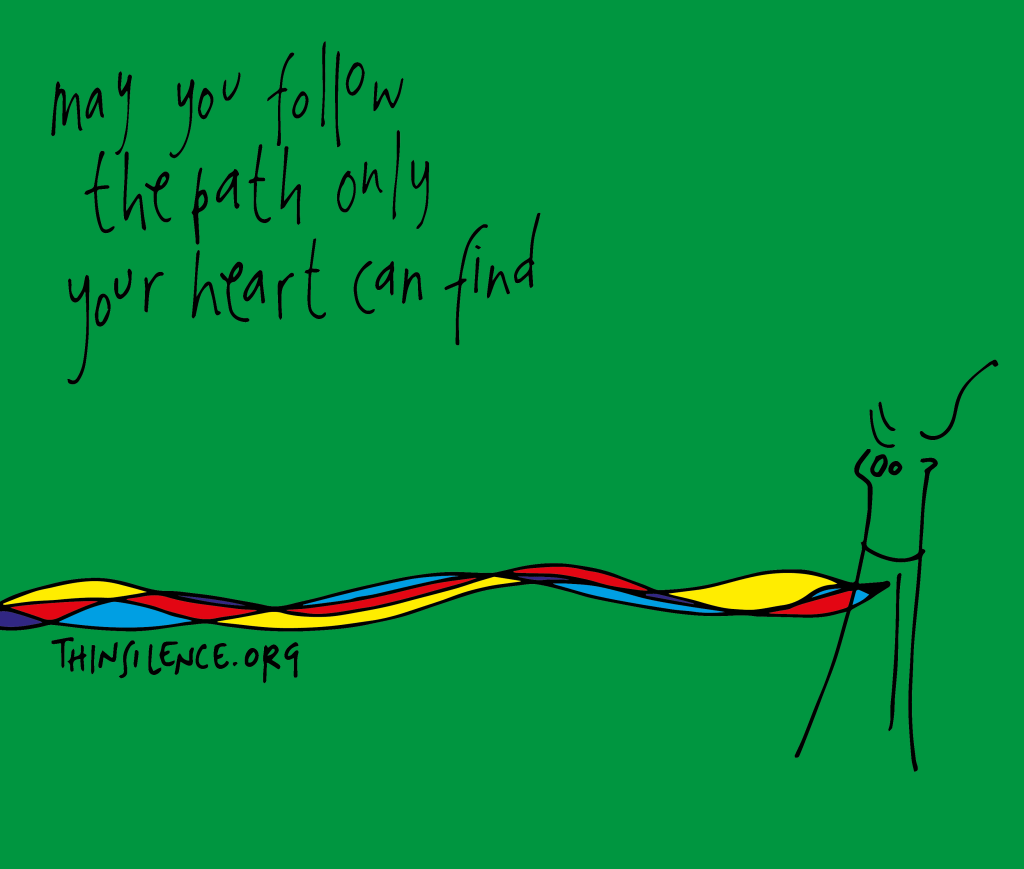 may you follow
the path only
your heart can find
THINSILENCE.ORG